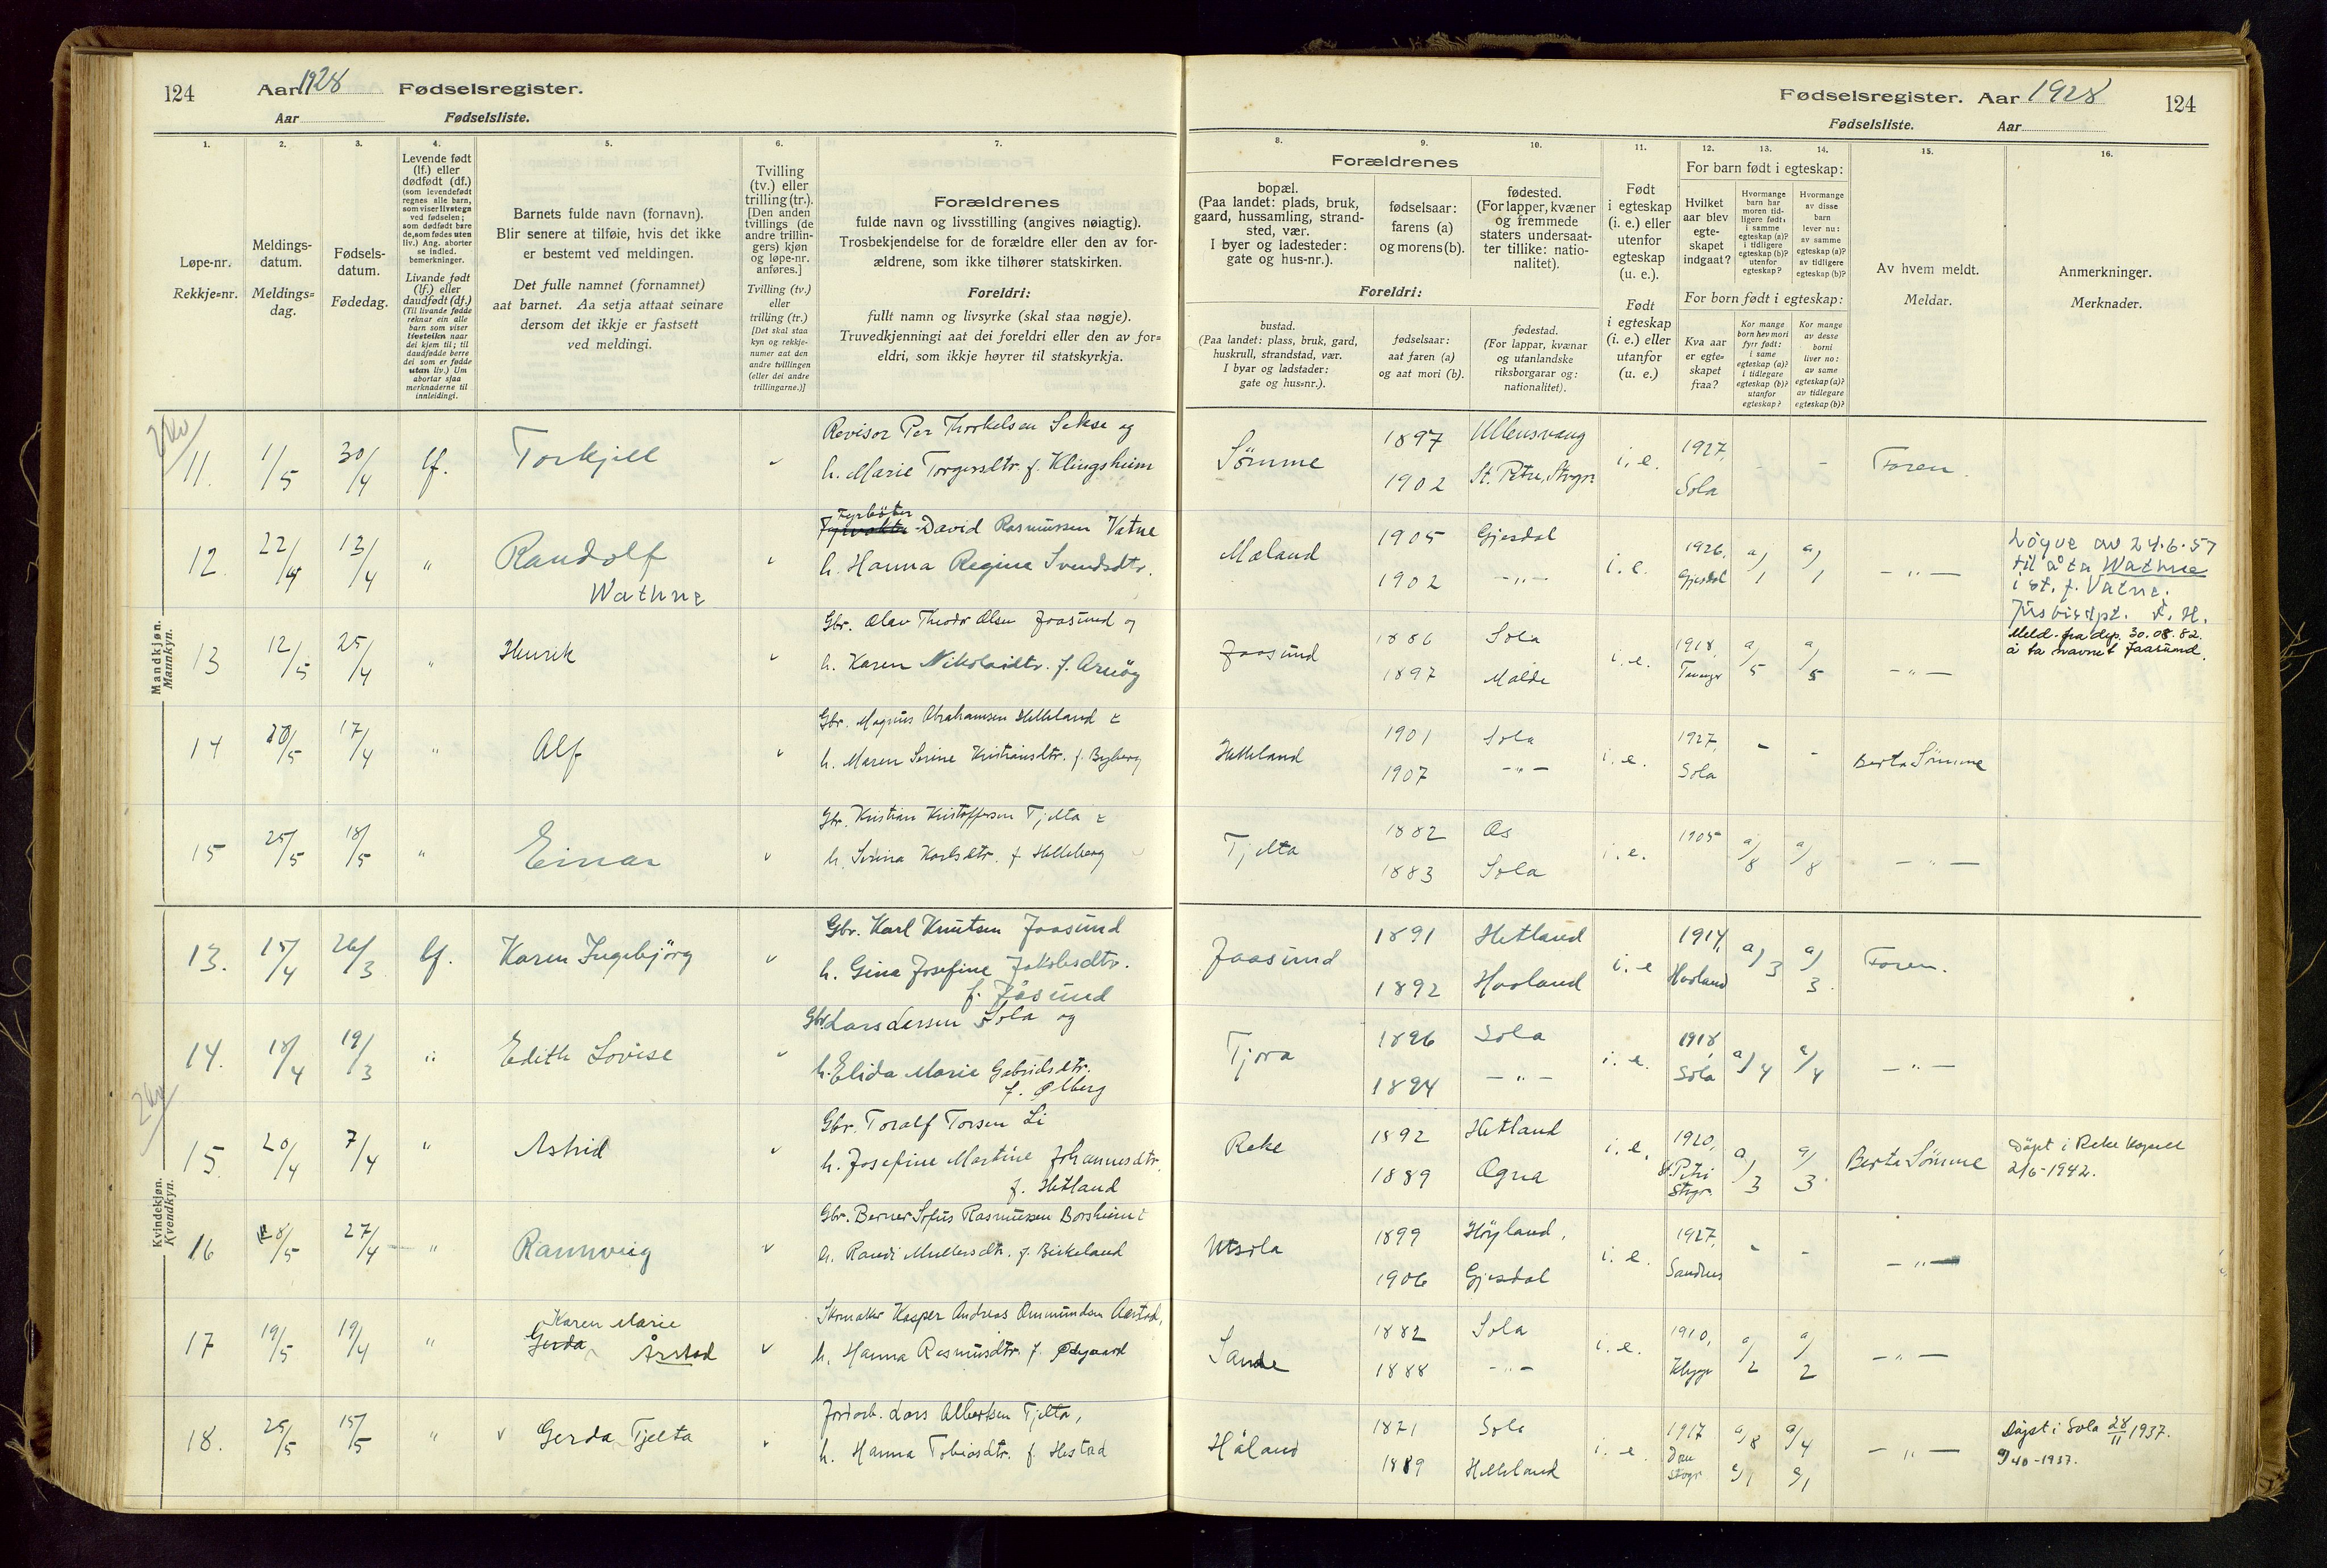 124 Aar 1928 Fødselsregister.
Aar Fødselsliste.
Fødselsregister. Aar 1928 124
Fødselsliste. Aar
1. 2. 3. 4. 5. 6. 7.
8. 9. 10. 11. 12. 13. 14. 15. 16.
Løpe-nr.
Rekkje=nr.
Meldings-
datum.
Meldings=
dag.
Fødsels-
datum.
Fødedag.
Levende født
(lf.) eller
dødfødt (df.)
(som levendefødt
regnes alle barn,
som viser livstegn
ved fødselen;
som dødfødt bare
de, som fødes uten
liv.) Ang. aborter
se indled.
bemerkninger.
Livande født
(lf.) eller
daudfødt (df.)
(Til livande fødde
reknar ein alle
barn som viser
livsteikn naar
dei kjem til; til
daudfødde berre
dei som er fødde
utan liv.) Um
abortar sjaa
merknaderne til
innleidingi.
Barnets fulde navn (fornavn).
Blir senere at tilføie, hvis det ikke
er bestemt ved meldingen.
Det fulle namnet (fornamnet)
aat barnet. Aa setja attaat seinare
dersom det ikkje er fastsett
ved meldingi.
Tvilling
(tv.) eller
trilling (tr.).
[Den anden
tvillings (de
andre trillin-
gers) kjøn
og løpe-nr.
anføres.]
Tvilling (tv.)
eller
trilling (tr.)
[Det skal staa
kyn og rekkje-
numer aat den
andre tvillingen
(eller dei andre
trillingarne.)]
Forældrenes
fulde navn og livsstilling (angives nøiagtig).
Trosbekjendelse for de forældre eller den av for-
ældrene, som ikke tilhører statskirken.
Foreldri:
fullt namn og livsyrke (skal staa nøgje).
Truvedkjenningi aat dei foreldri eller den av for=
eldri, som ikkje høyrer til statskyrkja.
Forældrenes
bopæl.
(Paa landet: plads, bruk,
gaard, hussamling, strand-
sted, vær.
I byer og ladesteder:
gate og hus-nr.).
fødselsaar:
farens (a)
og morens (b).
fødested.
(For lapper, kvæner
og fremmede
staters undersaat-
ter tillike: natio-
nalitet).
Foreldri:
bustad.
(Paa landet: plass, bruk, gard,
huskrull, strandstad, vær.
I byar og ladstader:
gate og hus=nr.).
fødselsaar:
aat faren (a)
og aat mori (b).
fødestad.
(For lappar, kvænar
og utanlandske
riksborgarar og:
nationalitet).
Født
i egteskap
(i. e.) eller
utenfor
egteskap
(u. e.).
Født
i egteskap
(i. e.) eller
utanfor
(u. e.)
For barn født i egteskap:
Hvilket
aar blev
egte-
skapet
indgaat?
Hvormange
barn har
moren tid-
ligere født:
i samme
egteskap (a)?
i tidligere
egteskap (b)?
utenfor
egteskap?
Hvormange
av disse
barn
lever nu:
av samme
egteskap (a)?
av tidligere
egteskap (b)?
For born født i egteskap:
Kva aar
er egte=
skapet
fraa?
Kor mange
born hev mori
fyrr født:
i same
egteskap (a)?
i tidlegare
egteskap (b)?
utanfor
egteskap?
Kor mange
av desse
borni
liver no:
av same
egteskap (a)?
av tidlegare
egteskap (b)?
Av hvem meldt.
Meldar.
Anmerkninger.
Merknader.
Mandkjøn.
Mannkyn.
11. 1/5 30/4 lf. Torkjell
Revisor Per Thorkelsen Sekse og
h. Marie Torgersdtr. f. Klingsheim
Sömme 1897 Ullensvang i. e. 1927, - - Faren.
1902 St. Petri, Stvgr. Sola
12. 22/4 13/4 " Randolf
Wathne
Fyrböter
David Rasmussen Vatne
h. Hanna Regine Svendsdtr.
Mæland 1905 Gjesdal i. e. 1926, a/1 a/1 — " —
1902 — " — Gjesdal
Löyve av 24.6.57
til å ta Wathne
i st. f. Vatne.
Jusdisdpt.
13 12/5 25/4 " Henrik
Gbr. Olav Theodr Olsen Jaasund og
h. Karen Nikolaidtr. f. Aröy
Jaasund 1886 Sola i. e. 1918, a/5 a/5 — " —
1897 Molde
Meld. fra dep. 30.08.82.
å ta navnet Jaasund.
14 20/5 17/4 " Alf
Gbr. Magnus Abrahamsen Helleland &
h. Maren Serine Kristiansdtr. f. Byberg
Helleland 1901 Sola i. e. 1927, - - Berta Sömme
1907 — " — Sola
15 25/5 18/5 " Einar
Gbr. Kristian Kristoffersen Tjelta &
h. Serina Karlsdtr. f. Helleberg
Tjelta 1882 Os i. e. 1905 a/8 a/8 — " —
1883 Sola
Kvindekjøn.
Kvendkyn.
13. 15/4 26/3 lf. Karen Ingebjörg
Gbr. Karl Knutsen Jaasund
h. Gina Josefine Jakobsdtr.
f. Jåsund
Jaasund 1891 Hetland i. e 1914, a/3 a/3 Faren.
1892 Haaland Haaland
14. 18/4 19/3 " Edith Lovise
Gbr. Lars Larsen Sola og
h. Elida Marie Gabrielsdtr.
f. Ølberg
Tjora 1896 Sola i. e. 1918, a/4 a/4 — " —
1894 — " — Sola
15. 20/4 7/4 " Astrid
Gbr. Toralf Torsen Li
h. Josefine Martine Johannesdtr.
f. Hetland
Reke 1892 Hetland i. e. 1920, a/3 a/3 Berta Sömme
1889 Ogna St Petri
Stvgr.
Döpt i Reke kapell
2/6-1942.
16 28/5 27/4 " Rannveig
Gbr. Berner Sofus Rasmussen Borsheim &
h. Randi Mullersdtr. f. Birkeland
Utsola 1899 Höyland, i. e. 1927, - - — " —
1906 Gjesdal Sandnes
17 19/5 19/4 " Karen Marie
Gerda Årstad
Skomaker Kasper Andreas Ommundsen Aarstad,
h. Hanna Rasmusdtr. f. Ødegaard
Sande 1882 Sola i. e. 1910, a/2 a/2 — " —
1888 — " — Klepp
18. 25/5 15/5 " v Gerda Tjelta
Jordarb. Lars Albertsen Tjelta,
h. Hanna Tobiasdtr. f. Hestad
Håland 1871 Sola i. e 1917 a/8 a/4 — " —
1889 Helleland Dom Stvgr
Döpt i Sola 28/11 1937.